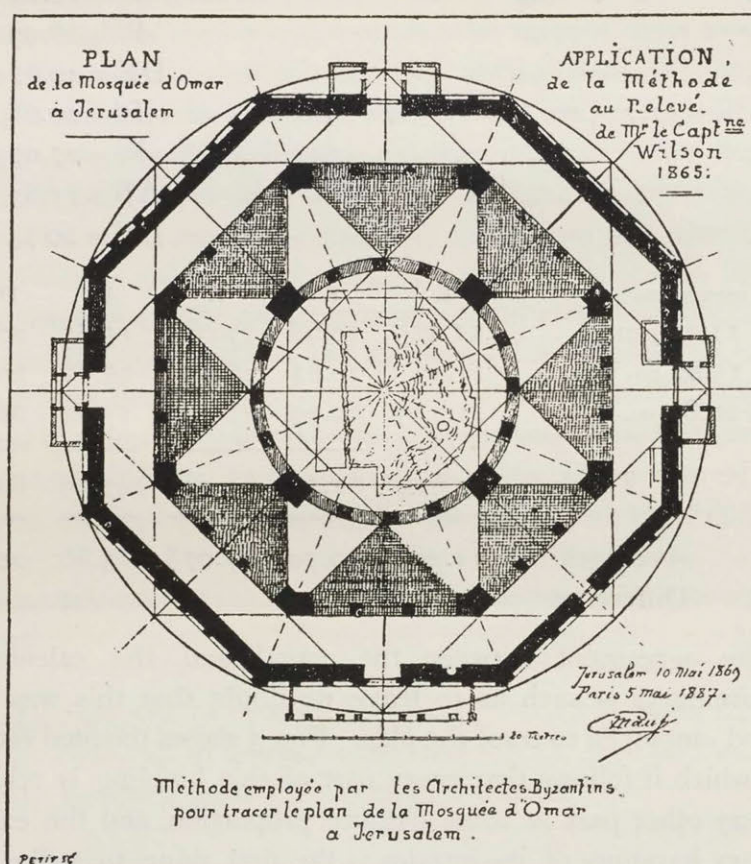 PLAN
de la Mosquée d'Omar
à Jerusalem
APPLICATION,
de la Méthode
au Relevé.
de Mr le Captne
Wilson
1865:
Jerusalem 10 Mai 1869
Paris 5 mai 1887.
20 metres
Méthode employée par les Architectes Byzantins
pour tracer le plan de la Mosquée d'Omar
a Jerusalem.